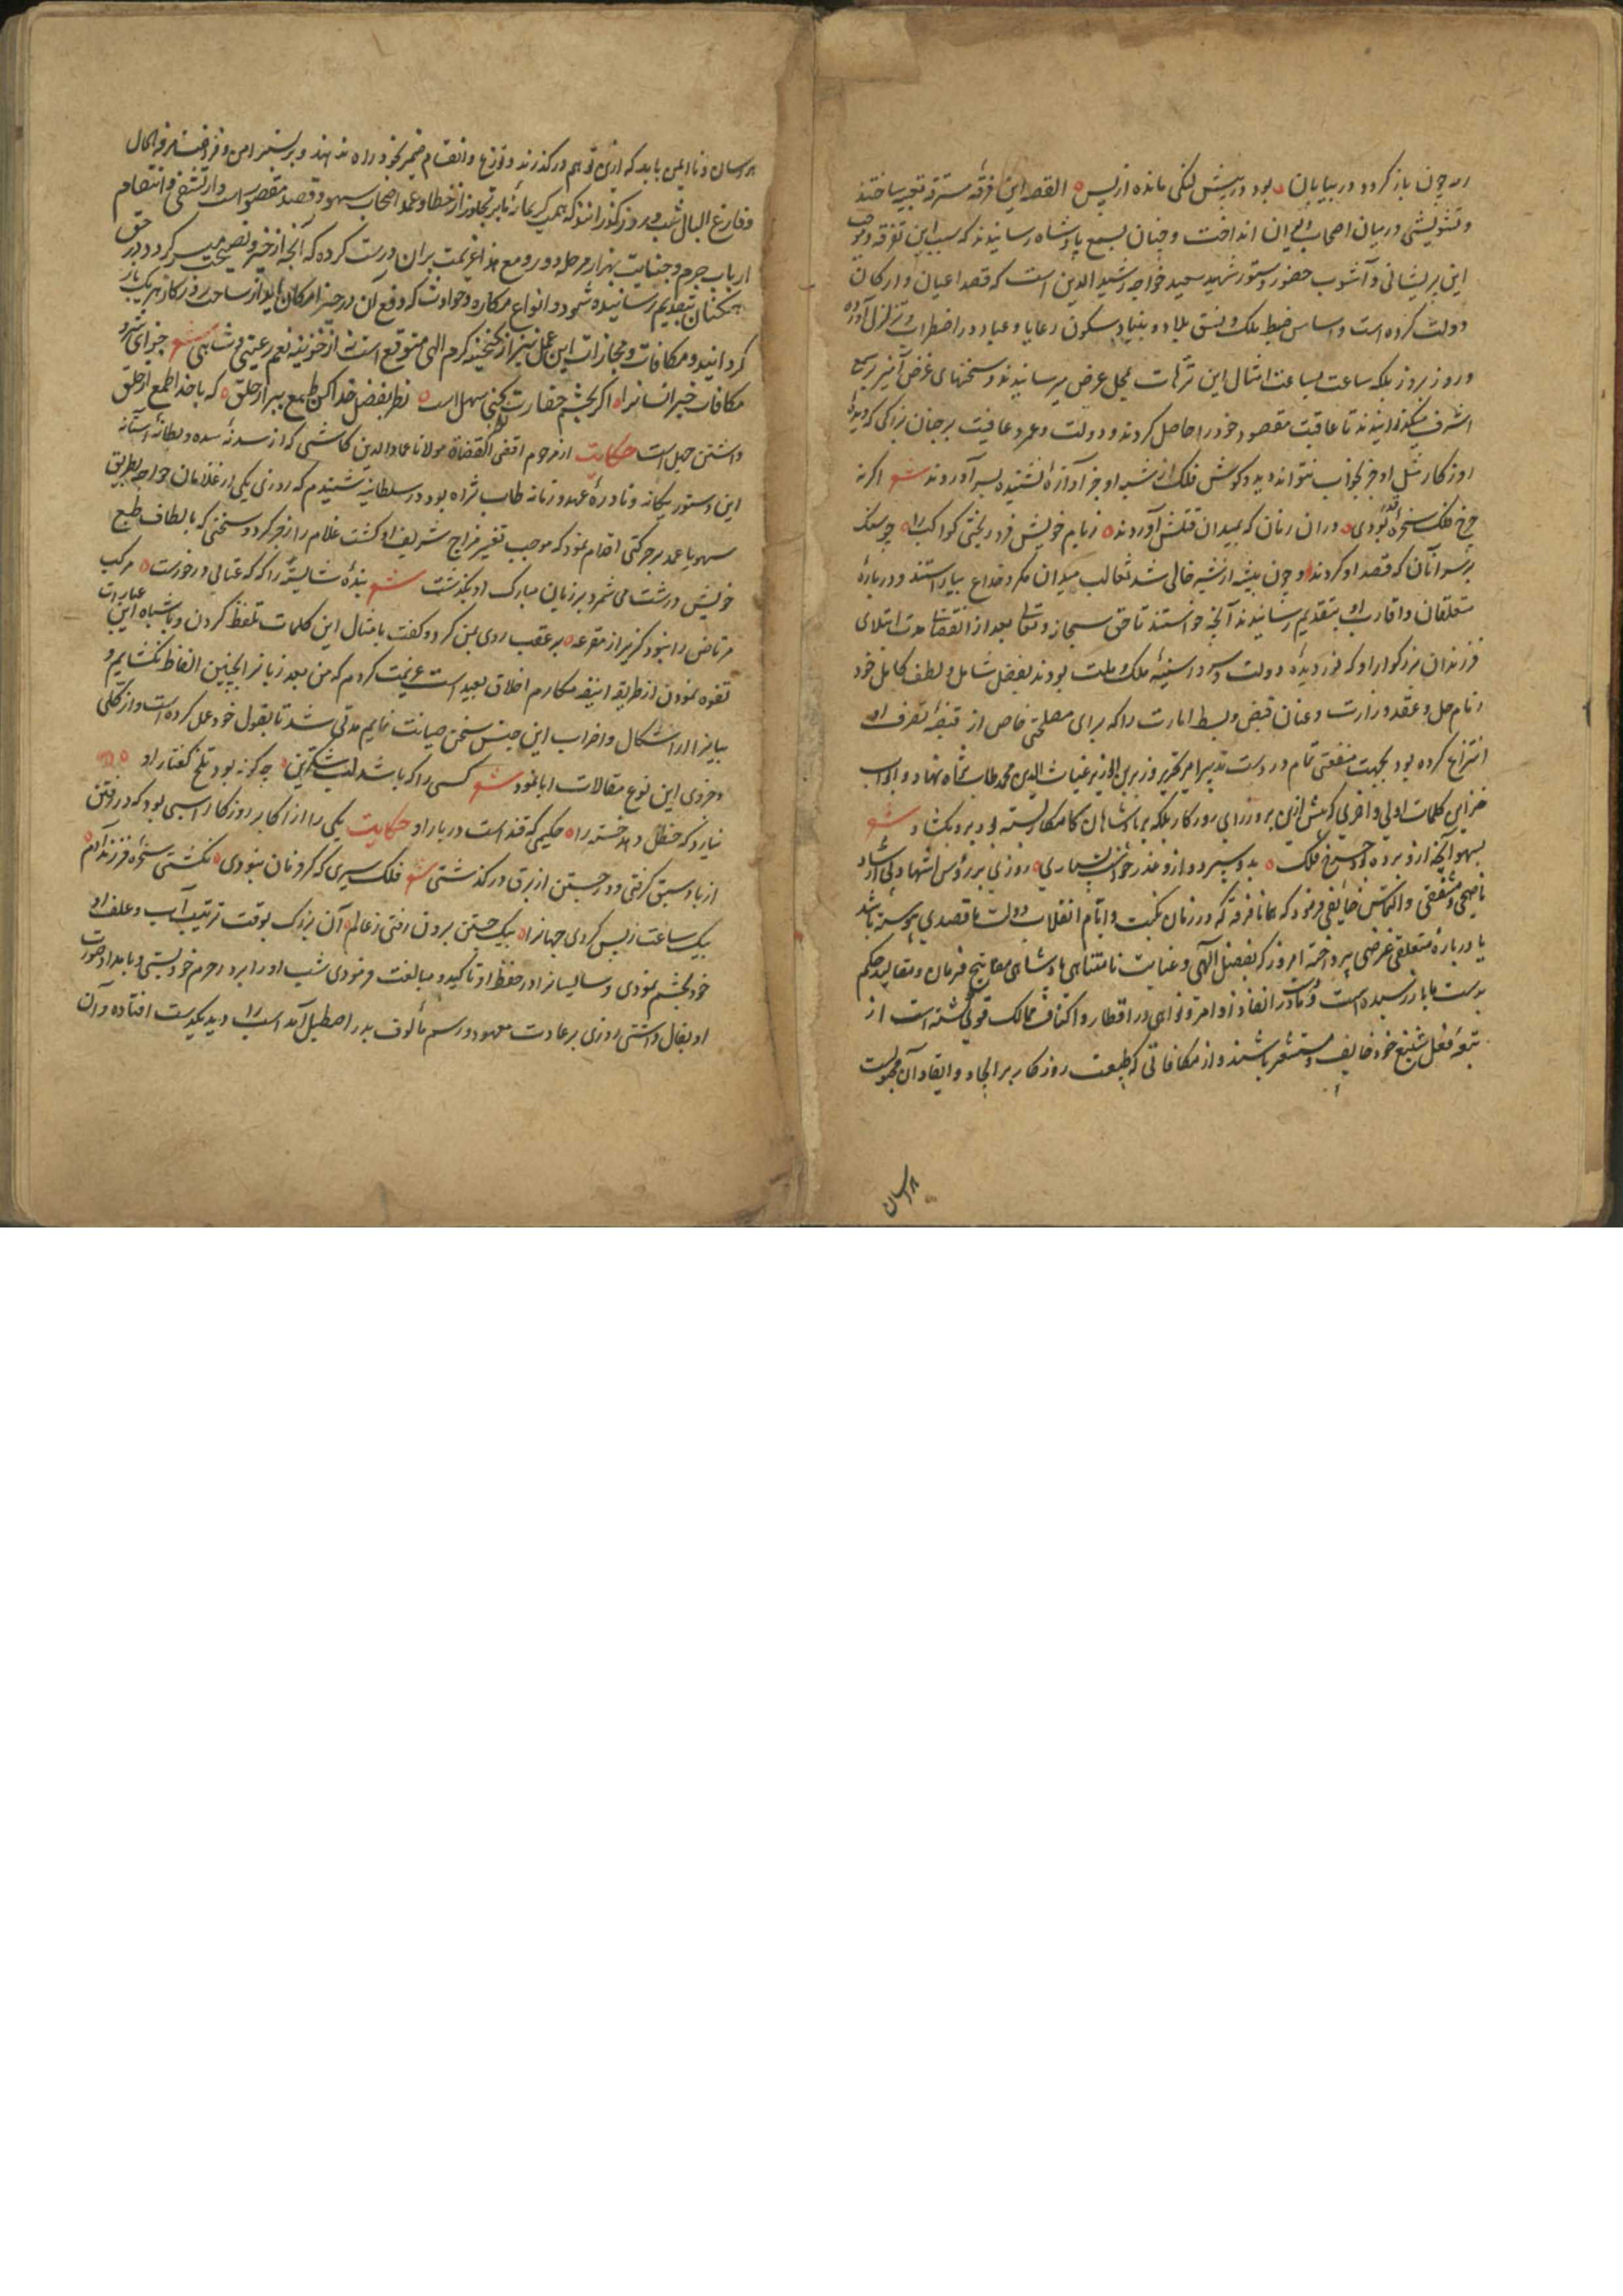 اره چون باز کردد در بیابان بود در پیش لنکی مانده از پس القصه این فرقهٔ متفرقه تعبیه ساختند
و تشویشی در میان اصحاب دیوان انداخت و چنان بسمع پادشاه رسانیدند که سبب این تفرقه و موجب
این پریشانی و آشوب حضور دستور شهید سعید خواجه رشید الدین است که قصد اعیان و ارکان
دولت کرده است و اساس ضبط ملک و نسق بلاد و بنیاد سکون رعایا و عباد در اضطراب و تزلزل آورده
و روز بروز بلکه ساعت بساعت امثال این ترهات بمحل عرض میرسانیدند و سخنهای غرض آمیز بسمع
اشرف میکذرانیدند تا عاقبت مقصود خود را حاصل کردند و دولت و عمر و عافیت بر جنان بزرکی که دیدهٔ
روزکار مثل او جز بخواب نتواند دید و کوش فلک از شبه او جز آوازهٔ نشنیده بسر آوردند شعر اکر نه
چرخ فلک سخرهٔ قضا بودی در ان زمان که بمیدان قتلش آوردند ز بام خویش فرو ریختی کواکب را چو سنک
بر سر آنان که قصد او کردند و چون بیشه از شیر خالی شد ثعالب میدان مکر و خداع بیاراستند و در بارهٔ
متعلقان و اقارب او بتقدیم رسانیدند آنچه خواستند تا حق سبحانه و تعالی بعد از انقضاء مدت ابتلای
فرزندان بزرکوار او که نور دیدهٔ دولت و سر دسنبهٔ ملک و ملت بودند بفضل شامل و لطف کامل خود
زمام حل و عقد وزارت و عنان قبض و بسط امارت را که برای مصلحتی خاص از قبضهٔ تصرف او
انتزاع کرده بود بجهت منفعتی تمام در دست تدبیر امیر کبیر وزیر بن الوزیر غیاث الدین محمد طاب ثراه نهاد و ابواب
خزاین کلمات اولی و اخری که پیش ازین بر وزرای روزکار بلکه بر پادشاهان کامکار بسته بود برو بکشاد شعر
بسهو آنچه ازو برده بود چرخ فلک بدو سپرد و ازو عذر خواست بسیاری روزی بر رؤس اشهاد بی ارشاد
ناصحی و مشفقی و التماس خایفی فرمود که همانا فرقه که در زمان نکبت و ایام انقلاب دولت ما قصدی پیوسته باشد
یا در بارهٔ متعلقی غرضی پرداخته امروز که بفضل الهی و عنایت نامتناهی پادشاهی مفاتیح فرمان و مقالید حکم
بدست ما باز رسیده است و قدرت ما در انفاذ اوامر و نواهی در اقطار و اکناف ممالک قوی کشته است از
تبعهٔ فعل شنیع خود خایف و مستشعر باشند و از مکافاتی که طبیعت روزکار بر ایجاد و ایقاد آن مجبولست
هراسان
هراسان و ناایمن باید که ازین توهم درکذرند و توزع و انقسام ضمیر بخود راه ندهند و بر بستر امن و فراغت مرفه الحال
و فارغ البال شب و روز کذرانند که همت کریمانهٔ ما بر تجاوز از خطا و عمد اصحاب سهو و قصد مقصور است و از تشفی و انتقام
ارباب جرم و جنایت بهزار مرحله دور و مع هذا عزیمت بران درست کرده که آنچه از خیر و نصیحت میسر کردد در حق
همکنان بتقدیم رسانیده شود و انواع مکاره و حوادث که دفع آن در حیز امکان آید از ساحت روزکار هر یک باز
کردانید و مکافات و مجازات این عمل نیز از کنجینهٔ کرم الهی متوقع است نه از خزینهٔ نعم رعیتی و شاهی شعر جزای شر و
مکافات خیر انسانرا اکر بچشم حقارت نظر کنی سهل است نظر بفضل خدا کن طمع ببر از خلق که با خدا طمع از خلق
داشتن جهل است حکایت از مرحوم اقضی القضاة مولانا عماد الدین کاشی که از سدنهٔ سده و بطانهٔ آستانه
این دستور یکانه و نادرهٔ عهد و زمانه طاب ثراه بود در سلطانیه شنیدم که روزی یکی از غلامان خواجه بطریق
سهو یا عمد بر حرکتی اقدام نمود که موجب تغییر مزاج شریف او کشت غلام را زجر کرد و سخنی که بالطاف طبع
خویش درشت می شمرد بر زبان مبارک او بکذشت شعر بندهٔ شایسته را که که عتابی در خورست مرکب
مرتاض را نبود کزیر از مقرعه بر عقب روی بمن کرد و کفت بامثال این کلمات تلفظ کردن و باشباه این عبارات
تفوه نمودن از طریقهٔ انیقهٔ مکارم اخلاق بعید است عزیمت کردم که من بعد زبانرا بچنین الفاظ نکشایم و
بیانرا از اشکال و اضراب این جنس سخن صیانت نمایم مدتی شد تا بقول خود عمل کرده است و از کلی
و جزوی این نوع مقالات ابا نمود شعر کسی را که باشد لب شکرین چه کونه بود تلخ کفتار او
نیارد که حنظل دهد خسته را حکیمی که قند است در بار او حکایت یکی را از اکابر روزکار اسبی بود که در رفتن
از باد سبق کرفتی و در جستن از برق درکذشتی شعر فلک سیری که کر و نان نبودی نکشتی سخره فرزند آدم
بیک ساعت ز پس کردی جهانرا بیک جستن برون رفتی ز عالم آن بزرک بوقت ترتیب آب و علف او
خود بچشم نمودی و سالیسانرا در حفظ او تاکید و مبالغت فرمودی شب او را برد در حرم خود بستی و بامداد صورت
او بفال داشتی روزی بر عادت معهود و رسم مألوف بدر اصطبل آمد اسب را دید بکدست افتاده و آن